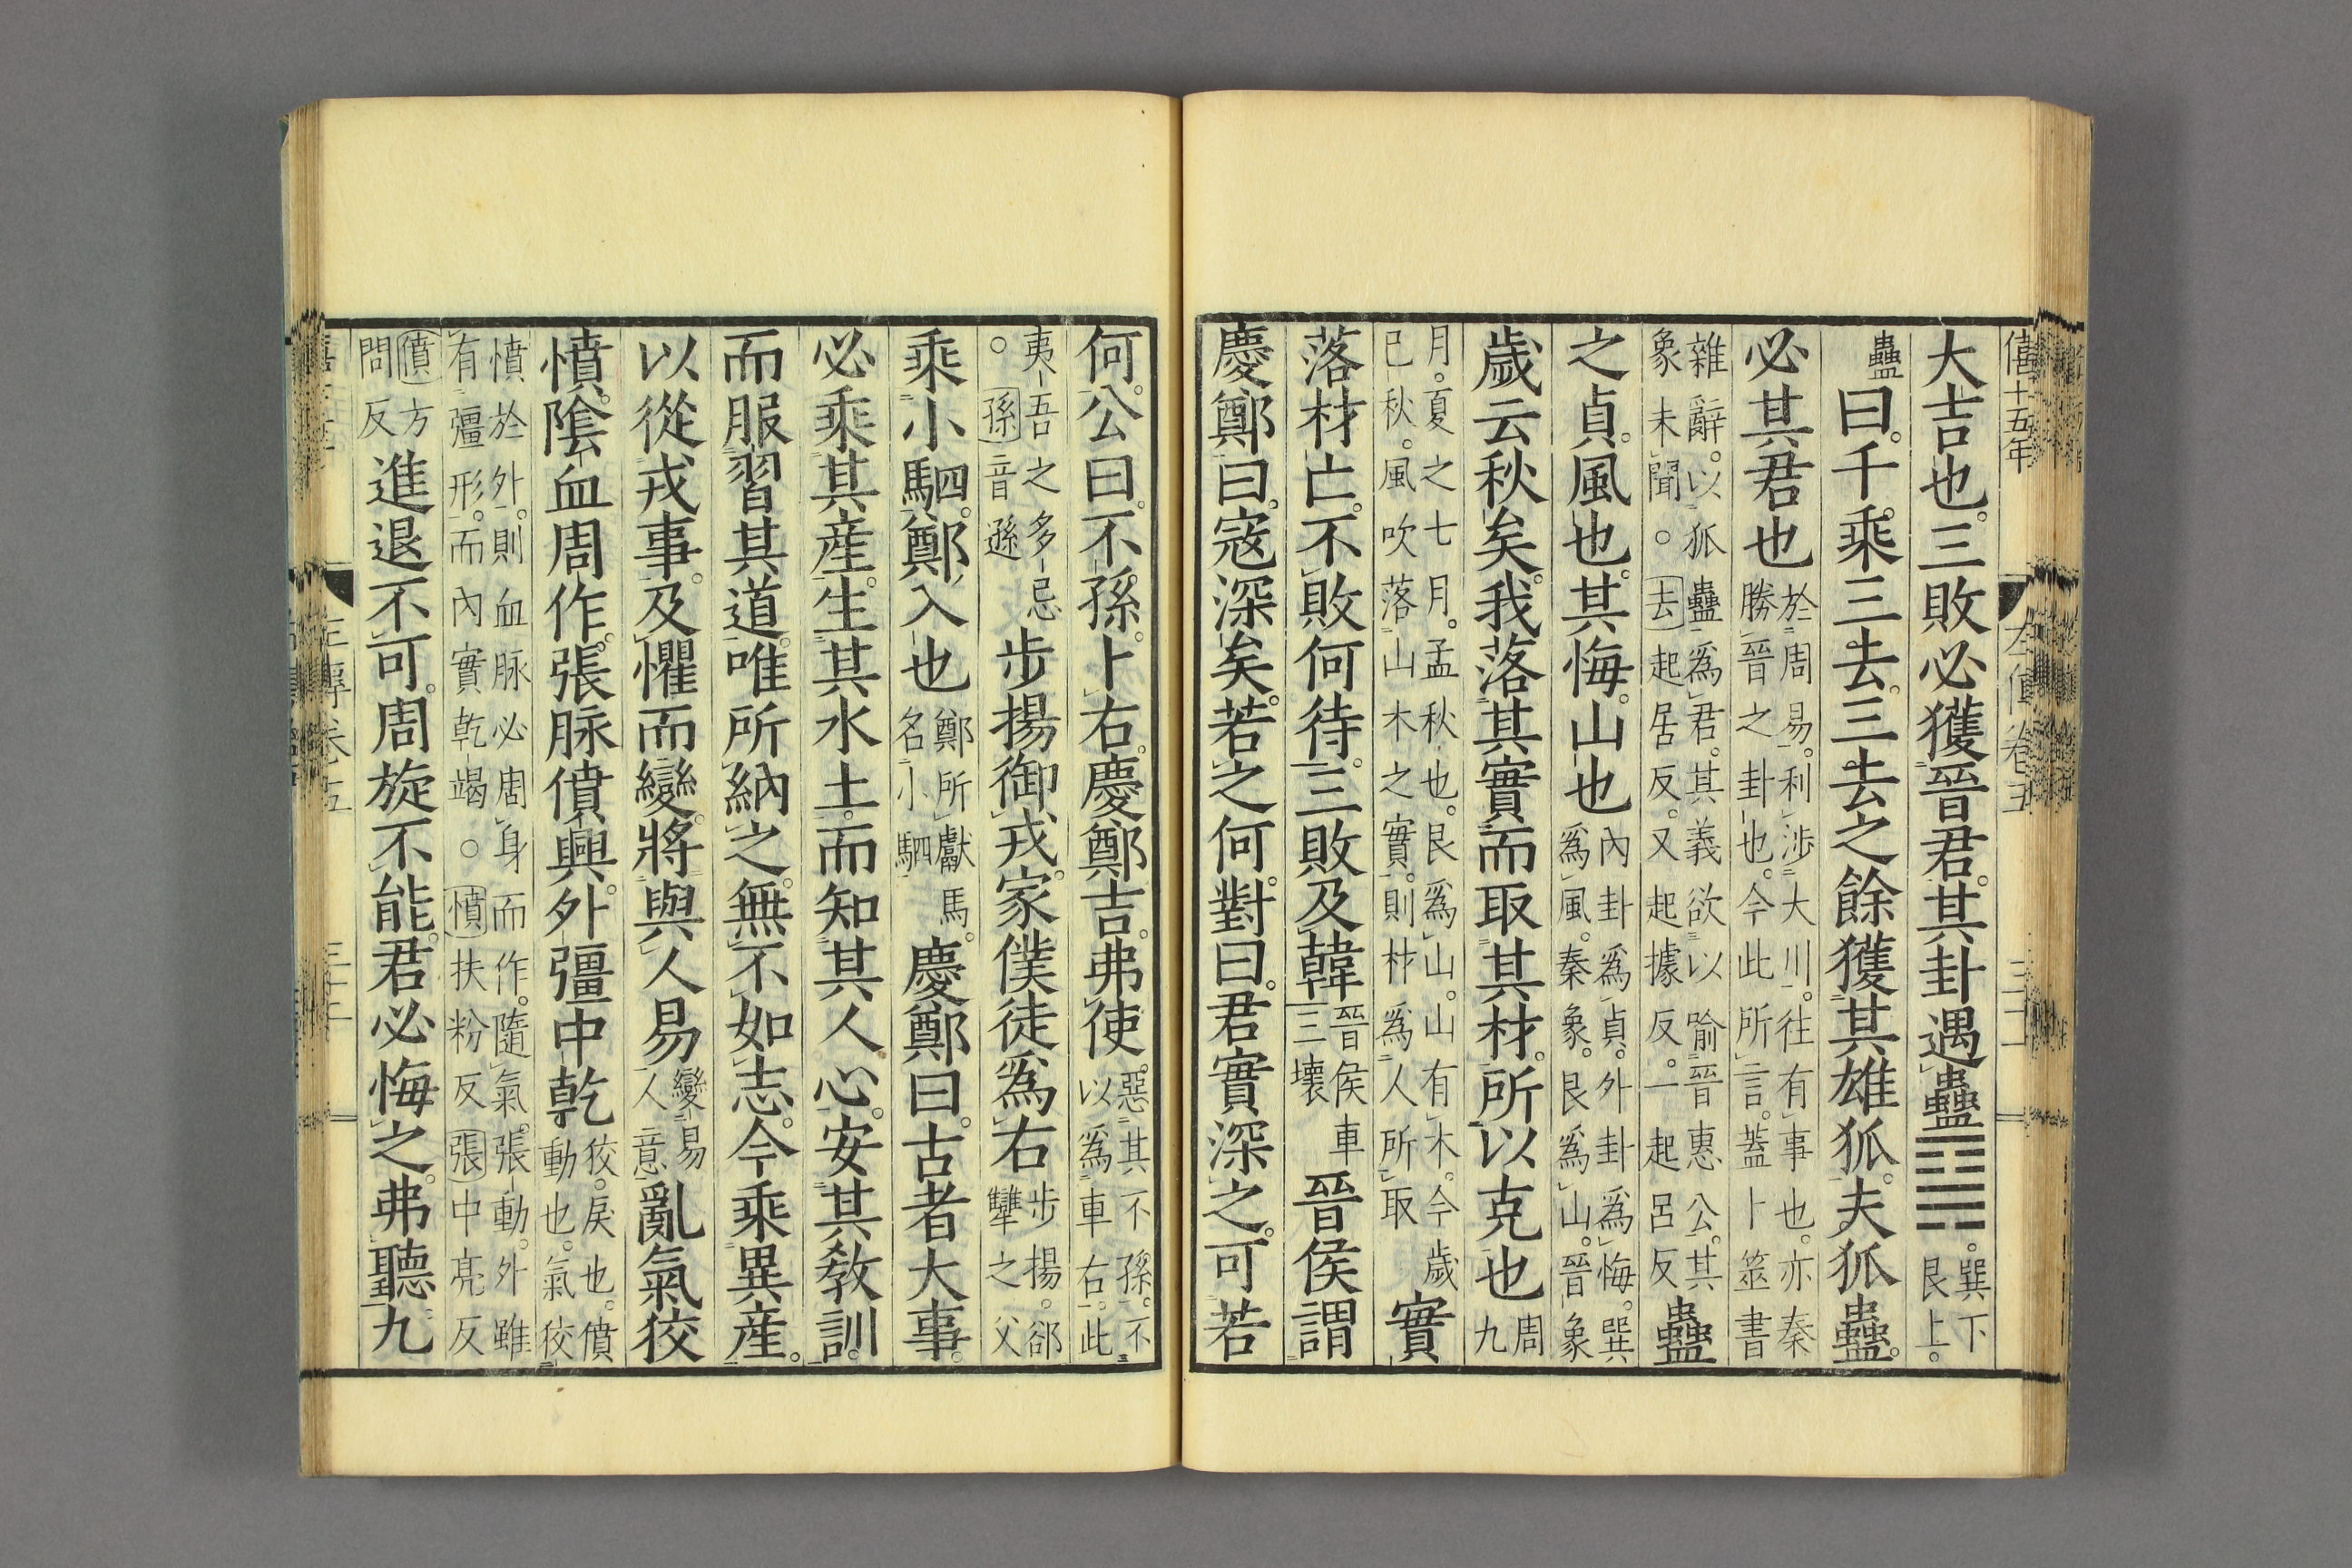 僖十五年 左傳卷五
大吉也。三敗必獲晉君。其卦遇蠱䷑。巽下艮上。
蠱曰。千乘三去。三去之餘獲其雄狐。夫狐蠱。
必其君也於周易。利涉大川。往有事也。亦秦勝晉之卦也。今此所言。蓋卜筮書
雜辭。以狐蠱爲君。其義欲以喻晉惠公。其象未聞。○去起居反。又起據反。一起呂反蠱
之貞。風也。其悔。山也內卦爲貞。外卦爲悔。巽爲風。秦象。艮爲山。晉象
歲云秋矣。我落其實而取其材。所以克也周九
月。夏之七月。孟秋也。艮爲山。山有木。今歲已秋。風吹落山木之實。則材爲人所取實
落材亡。不敗何待。三敗及韓晉侯車三壞晉侯謂
慶鄭曰。寇深矣。若之何。對曰。君實深之。可若
何。公曰。不孫。卜右。慶鄭吉。弗使。惡其不孫。不以爲車右。此
夷吾之多忌。○孫音遜步揚御戎。家僕徒爲右步揚。郤犨之父
乘小駟。鄭入也鄭所獻馬。名小駟慶鄭曰。古者大事。
必乘其產。生其水土。而知其人心。安其教訓。
而服習其道。唯所納之。無不如志。今乘異產。
以從戎事。及懼而變。將與人易變易人意亂氣狡
憤。陰血周作。張脉僨興。外彊中乾狡。戾也。僨動也。氣狡
憤於外。則血脉必周身而作。隨氣。張動。外雖有彊形。而內實乾竭。○憤扶粉反張中亮反
僨方問反進退不可。周旋不能。君必悔之。弗聽。九